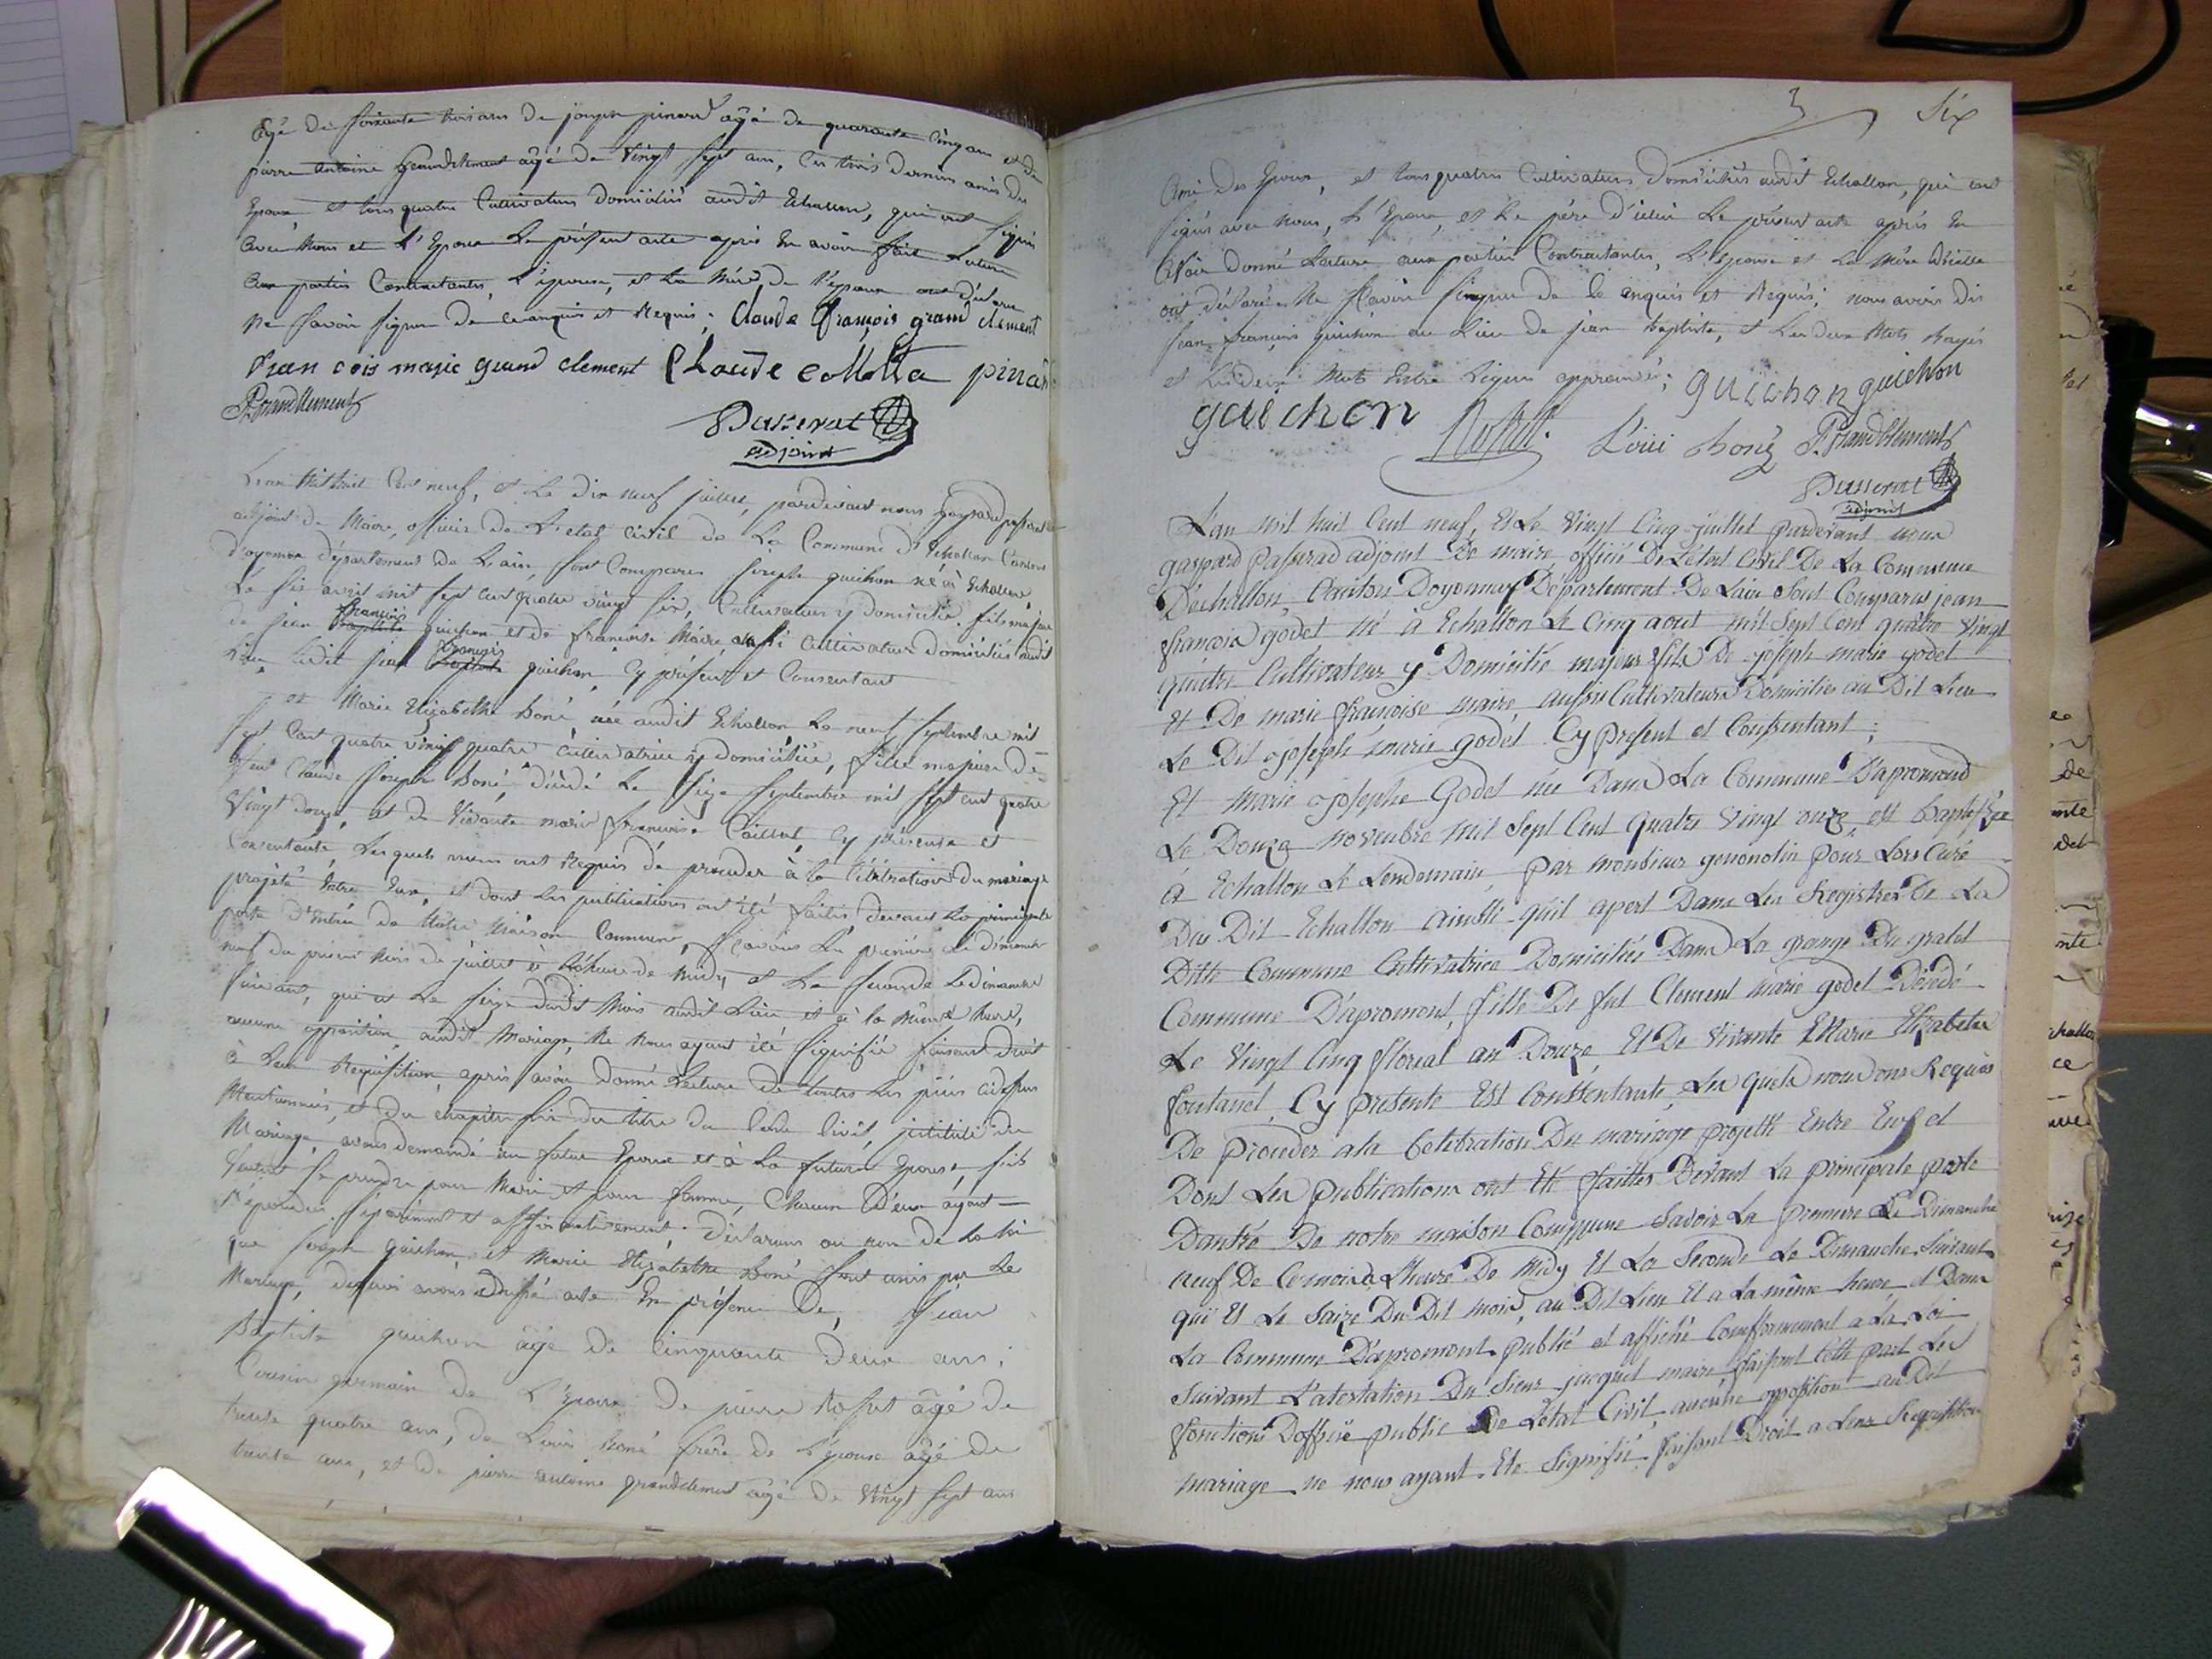 âgé de soixante trois ans de joseph pinard âgé de quarante cinq ans et de
pierre antoine Grandclement âgé de vingt sept ans, les trois derniers amis des
Epoux et tous quatre Cultivateurs domiciliés audit Echallon, qui ont signés
avec nous et L'Epoux Le présent acte après En avoir fait Lecture
aux parties Contractantes, L'épouse, et La Mère de L'époux ont déclaré
ne savoir signer de ce enquis et Requis; Claude françois grand clement
fran cois marie grand clement Claude colletta pinard
P. Grandclement
Passerat
adjoint
L'an Mil huit Cent neuf, et Le dix neuf juillet, pardevant nous Gaspard passerat
adjoint de Maire, officier de L'état civil de La Commune d'Echallon Canton
d'oyonnax département de L'ain, sont Comparus Joseph guichon né à Echallon,
Le six avril mil sept cent quatre vingt six, Cultivateur y domicilié, fils majeur
françois
de jean baptiste guichon et de françoise Maire, aussi cultivateurs domiciliés audit
françois
Lieu Ledit jean baptiste guichon Cy présent et Consentant
et Marie Elizabethe boné née audit Echallon Le neuf Septembre mil
sept Cent quatre vingt quatre cultivatrice y domiciliée, fille majeure de
feu Claude Joseph boné décédé Le seize Septembre mil sept cent quatre
vingt douze, et de vivante marie françoise Caillat, Cy présente et
Consentante, Lesquels nous ont Requis de procéder à la Célébration du mariage
projeté Entre Eux, et dont Les publications ont été faites devant La principale
porte d'Entrée de Notre Maison Commune, sçavoir La première Le dimanche
neuf du présent Mois de juillet à L'heure de Midy, et La seconde Le dimanche
suivant, qui est Le seize dudit Mois audit Lieu et à la même heure,
aucune opposition audit Mariage, Ne Nous ayant été signifiée faisant droit
à Leur Requisition, après avoir donné Lecture de toutes Les pièces cidessus
Mentionnées, et du chapitre six du titre du Code Civil, intitulé du
Mariage, avons demandé au futur Epoux et à La future Epouse, s'ils
Veulent se prendre pour Mari et pour femme, Chacun D'eux ayant
répondu séparément et affirmativement; Déclarons au nom de La Loi
que Joseph guichon, et Marie Elizabethe boné sont unis par Le
Mariage, de quoi avons dressé acte En présence De, Jean
Baptiste guichon âgé de Cinquante Deux ans;
Cousin germain de L'Epoux De pierre Rosset âgé de
trente quatre ans, de Louis boné frère de L'épouse âgé de
trente ans, et de pierre antoine grandclement âgé de vingt sept ans
3 Six
Ami des Epoux, et tous quatre Cultivateurs domiciliés audit Echallon, qui ont
signés avec nous, L'Epoux, et Le père d'icelui Le présent acte après En
avoir donné Lecture aux parties Contractantes, L'épouse et La Mère d'icelle
ont déclaré Ne sçavoir signer de ce enquis et Requis; nous avons dis
jean françois guichon au Lieu de jean baptiste, et Les deux Mots Rayés
et Les deux Mots Entre Lignes approuvés; guichon guichon
guichon Rosset Loui boné P. Grandclement
Passerat
adjoint
L'an mil huit Cent neuf, Et Le Vingt Cinq juillet pardevant nous
gaspard passerad adjoint De maire, officié De L'état Civil De La Commune
D'échallon, Canton Doyonnax Département De Lain Sont Comparus jean
françois godet né à Echallon Le Cinq aout mil Sept Cent quatre Vingt
quatre Cultivateur y Domicilié majeur fils De joseph marie godet
Et De marie françoise maire, aussi Cultivateurs Domiciliés au Dit Lieu
Le Dit joseph marie godet Cy present et Conssentant;
Et marie josephe Godet née Dans La Commune D'apromond
Le Douze novembre mil Sept Cent quatre Vingt onze, est baptisée
à Echallon Le Lendemain, par monsieur genonolin pour Lors Curé
Du Dit Echallon ainssi qu'il apert Dans Les Registres De La
Ditte Commune Cultivatrice Domiciliée Dans La grange Du gralet
Commune D'apromont, fille De fut Clement marie godet Décédé
Le Vingt Cinq floreal an Douze, Et De vivante Marie Elizabethe
fontanel, Cy presente Est Conssentante, Les quels nous ons Requis
De proceder ala Celebration Du mariage projetté Entre Eux et
Dont Les publications ont Eté faittes Devant La principale porte
Dantré De notre maison Commune Savoir La premiere Le Dimanche
neuf De Ce mois a L'heure De Midy Et La Seconde Le Dimanche Suivant
qui Et Le Saize Du Dit mois, au Dit Lieu Et a La même heure et Dans
La Commune D'apromont publié et affiché Conformement a La Loi
Suivant L'atestation Du Sieur jacquet maire faisant Cette part Les
fonctions Doffisié public De Létat Civil, aucune opposition au Dit
mariage ne nous ayant Eté Signifié faisant Droit a Leur Requisition